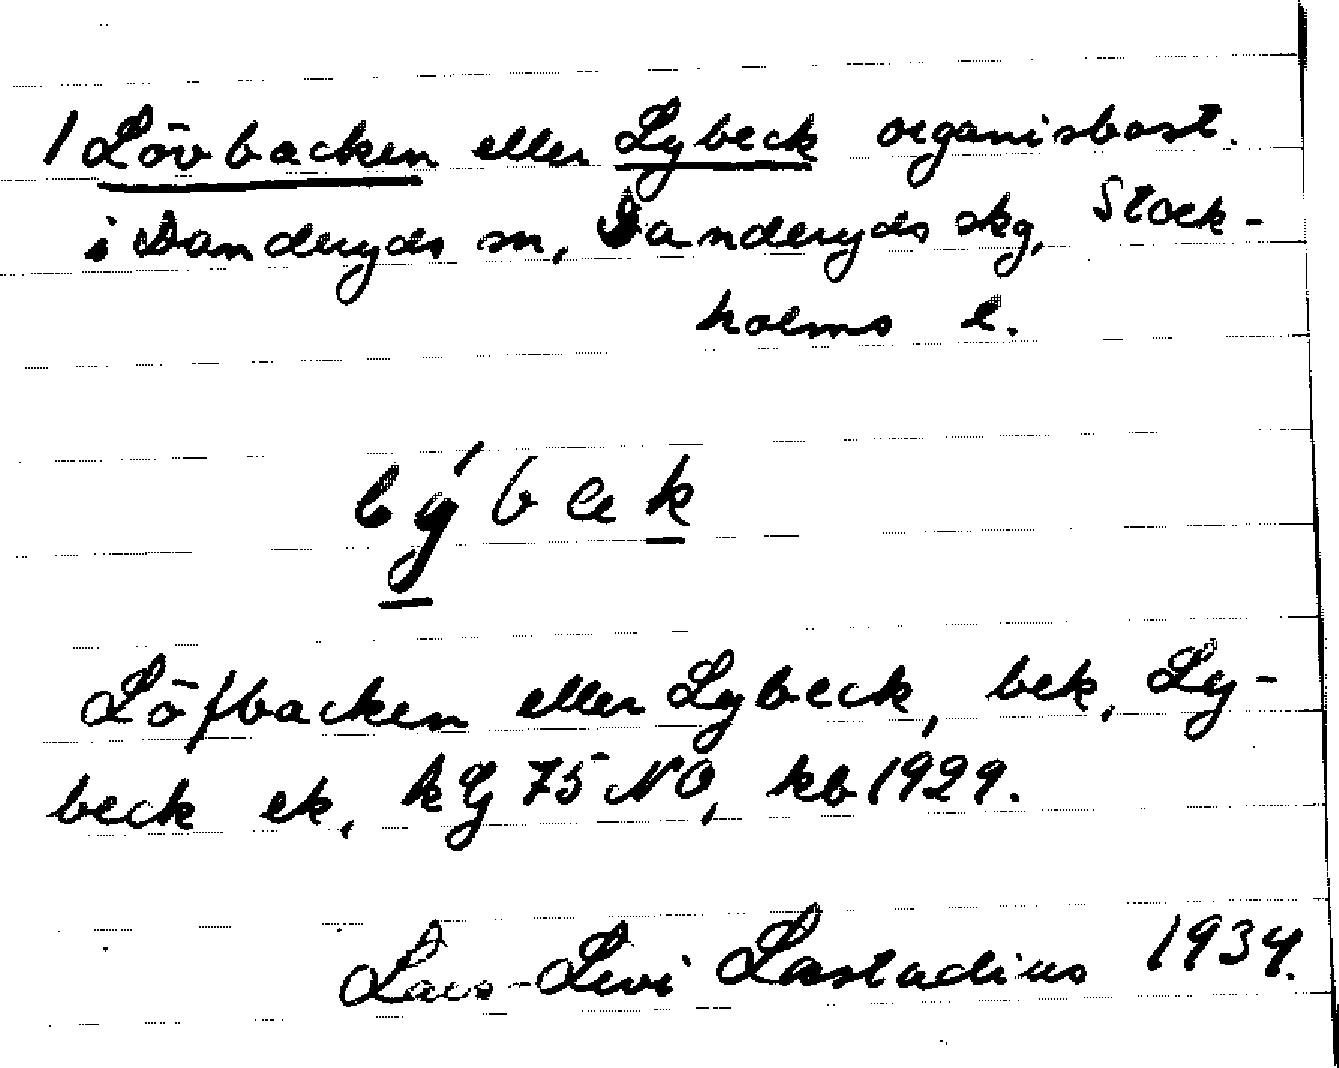 1 Lövbacken eller Lybeck organisbost.
i Danderyds sn, Danderyds skg, Stock-
holms l.
lýbek
Löfbacken eller Lybeck, bek, Ly-
beck ek, kG 75 NO, kb 1929.
Lars-Levi Læstadius 1934.